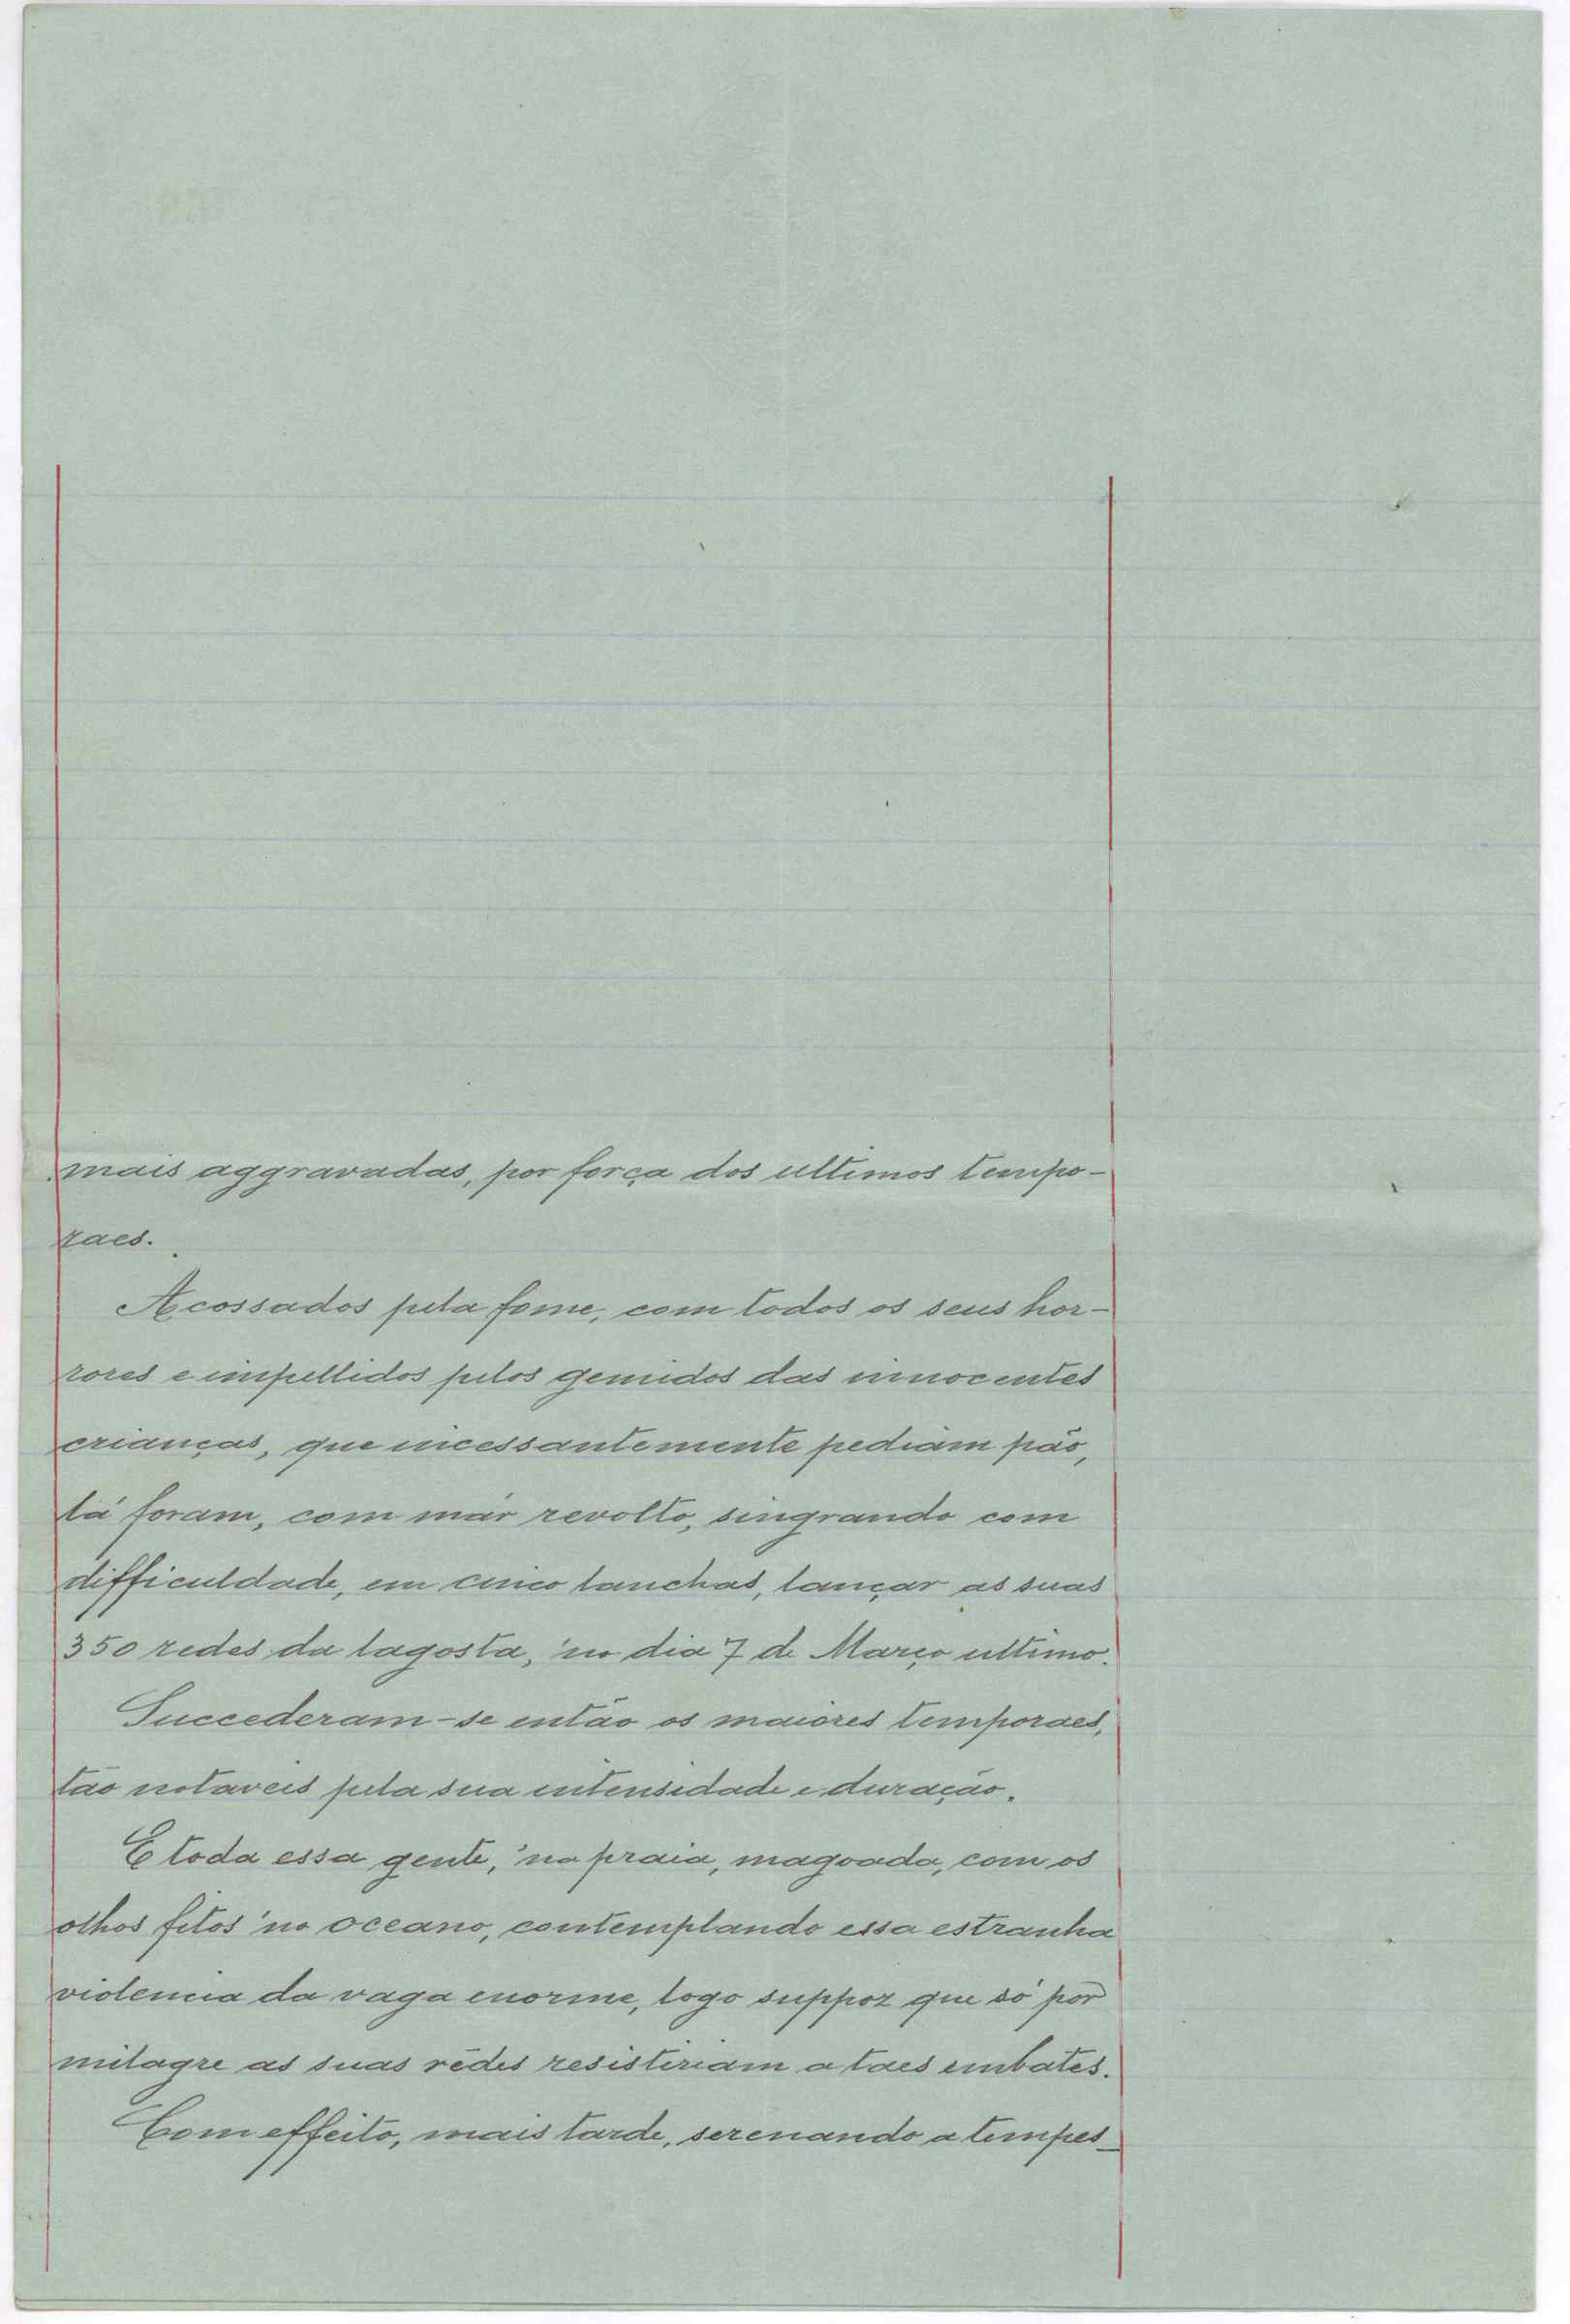 mais aggravadas, por força dos ultimos tempo-
raes.
Acossados pela fome, com todos os seus hor-
rores e impellidos pelos gemidos das innocentes
crianças, que incessantemente pediam pão,
lá foram, com mar revolto, singrando com
difficuldade, em cinco lanchas, lançar as suas
350 redes da lagosta, 'no dia 7 de Março ultimo.
Succederam-se então os maiores temporaes,
tão notaveis pela sua intensidade e duração.
E toda essa gente, 'na praia, magoada, com os
olhos fitos 'no oceano, contemplando essa estranha
violencia da vaga enorme, logo suppoz que só por
milagre as suas rêdes resistiriam a taes embates.
Com effeito, mais tarde, serenando a tempes-